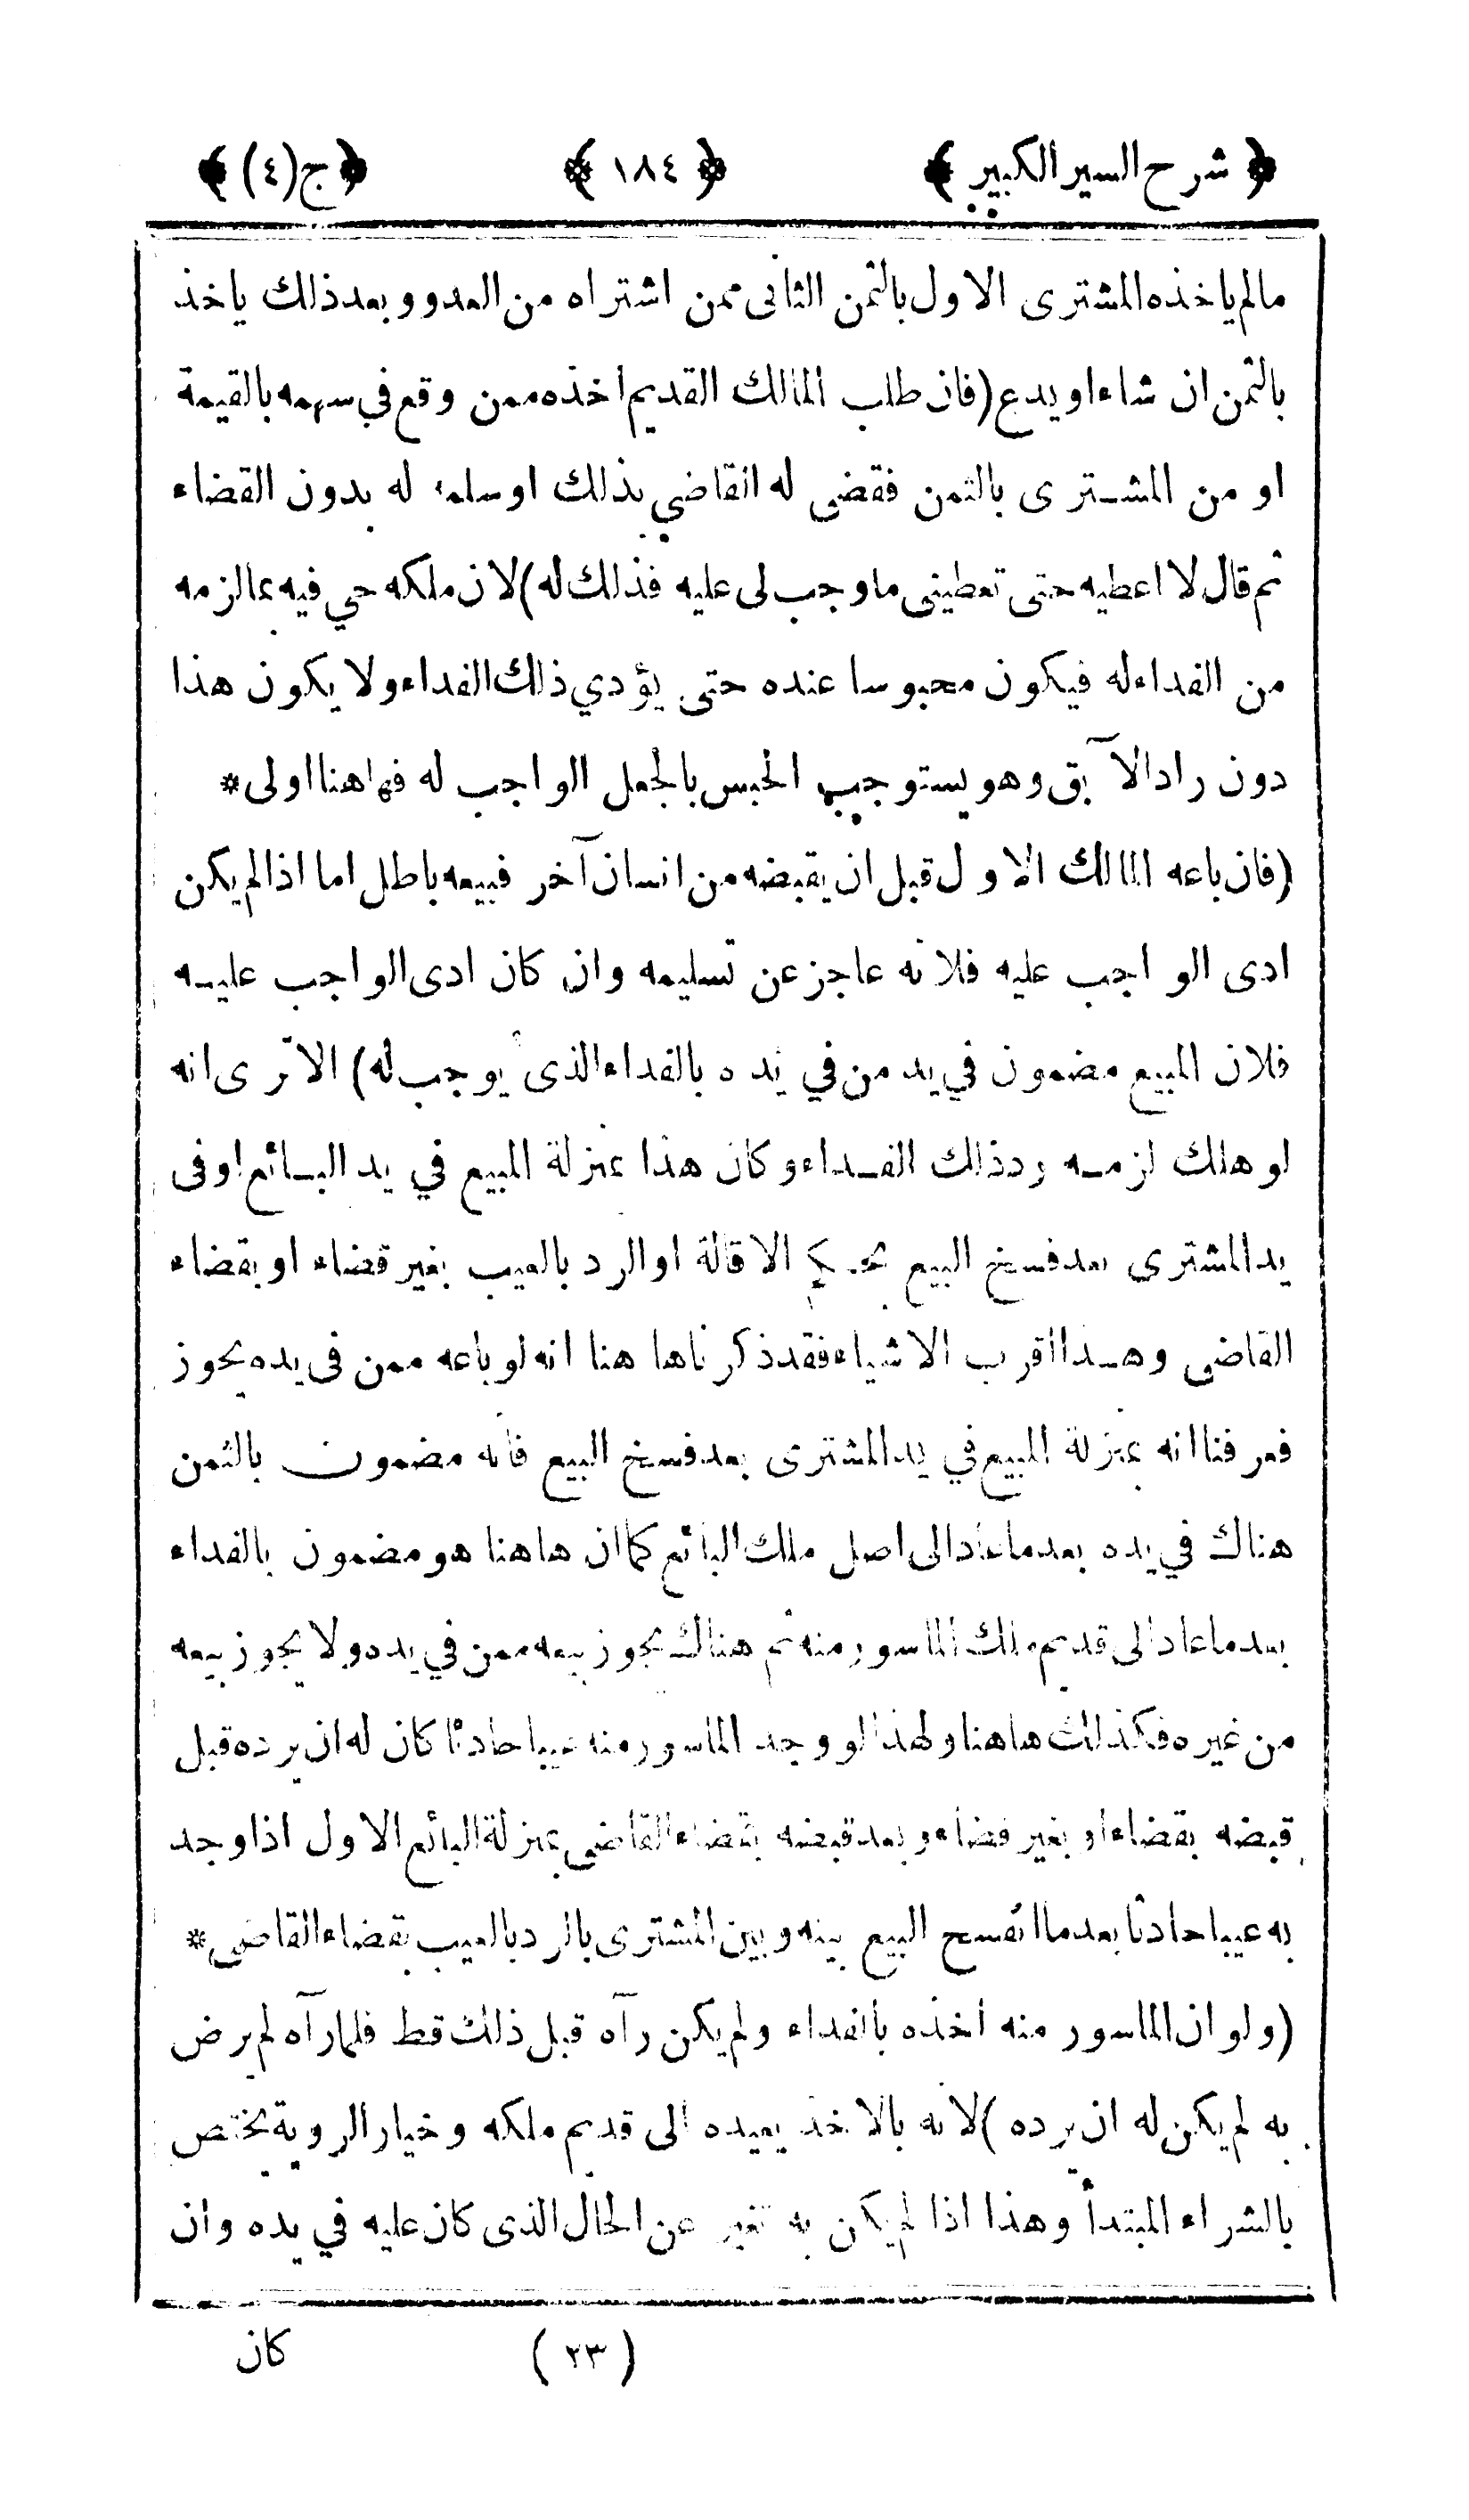 ﴿ شرح السير الكبير ﴾ ﴿ ١٨٤ ﴾ ﴿ ج (٤) ﴾
مالم ياخذه المشترى الاول بالثمن الثانى ممن اشتراه من العدو و بعد ذلك ياخذ
بالثمن ان شاء او يدع (فان طلب المالك القديم اخذه ممن وقع في سهمه بالقيمة
او من المشترى بالثمن فقضى له القاضي بذلك او سلمه له بدون القضاء
ثم قال لا اعطيه حتى تعطينى ما وجب لى عليه فذلك له) لان ملكه حي فيه بما لزمه
من الفداء له فيكون محبوسا عنده حتى يؤدي ذلك الفداء ولا يكون هذا
دون راد الآبق وهو يستوجب الحبس بالجعل الواجب له فها هنا اولى *
(فان باعه المالك الاول قبل ان يقبضه من انسان آخر فبيعه باطل اما اذا لم يكن
ادى الواجب عليه فلانه عاجز عن تسليمه وان كان ادى الواجب عليه
فلان المبيع مضمون في يد من في يده بالفداء الذى يوجب له) الا ترى انه
لو هلك لزمه رد ذلك الفداء وكان هذا بمنزلة المبيع في يد البائع او فى
يد المشترى بعد فسخ البيع بحكم الاقالة او الرد بالعيب بغير قضاء او بقضاء
القاضى وهذا اقرب الاشياء فقد ذكرناها هنا انه لو باعه ممن فى يده يجوز
فعرفنا انه بمنزلة المبيع في يد المشترى بعد فسخ البيع فانه مضمون بالثمن
هناك في يده بعد ما عاد الى اصل ملك البائع كما ان هاهنا هو مضمون بالفداء
بعد ما عاد الى قديم ملك الماسور منه ثم هناك يجوز بيعه ممن في يده ولا يجوز بيعه
من غيره فكذلك هاهنا ولهذا لو وجد الماسور منه عيبا حادثا كان له ان يرده قبل
قبضه بقضاء او بغير قضاء و بعد قبضه بقضاء القاضى بمنزلة البائع الاول اذا وجد
به عيبا حادثا بعد ما انفسخ البيع بينه و بين المشترى بالرد بالعيب بقضاء القاضى *
(ولو ان الماسور منه اخذه بالفداء ولم يكن رآه قبل ذلك قط فلما رآه لم يرض
به لم يكن له ان يرده) لانه بالاخذ يعيده الى قديم ملكه وخيار الروية يختص
بالشراء المبتدأ وهذا اذا لم يكن به تغير عن الحال الذى كان عليه في يده وان
(٢٣) كان